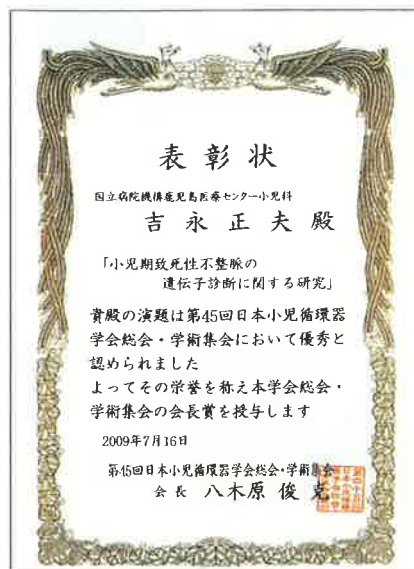 表彰状
国立病院機構鹿児島医療センター小児科
吉永正夫殿
「小児期致死性不整脈の
遺伝子診断に関する研究」
貴殿の演題は第45回日本小児循環器
学会総会・学術集会において優秀と
認められました
よってその栄誉を称え本学会総会・
学術集会の会長賞を授与します
2009年7月16日
第45回日本小児循環器学会総会・学術集会
会長 八木原俊克